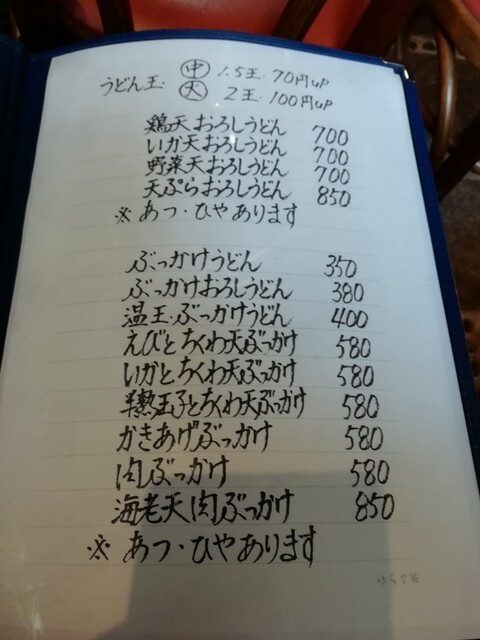 うどん玉. ㊥ 1.5玉. 70円UP
㊅ 2玉. 100円UP
鶏天おろしうどん 700
いか天おろしうどん 700
野菜天おろしうどん 700
天ぷらおろしうどん 850
※ あつ・ひやあります
ぶっかけうどん 350
ぶっかけおろしうどん 380
温玉ぶっかけうどん 400
えびとちくわ天ぶっかけ 580
いかとちくわ天ぶっかけ 580
半熟玉子とちくわ天ぶっかけ 580
かきあげぶっかけ 580
肉ぶっかけ 580
海老天肉ぶっかけ 850
※ あつ・ひやあります